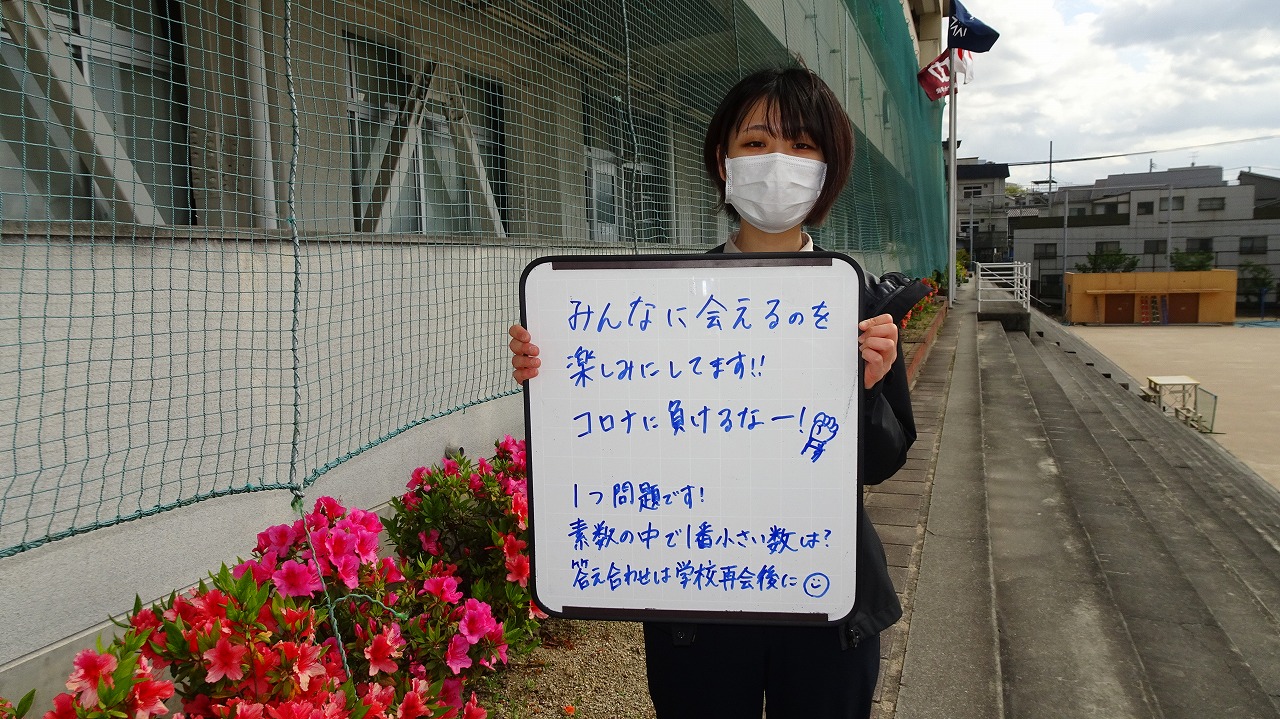 みんなに会えるのを
楽しみにしてます!!
コロナに負けるなー!
1つ問題です!
素数の中で1番小さい数は?
答え合わせは学校再会後に